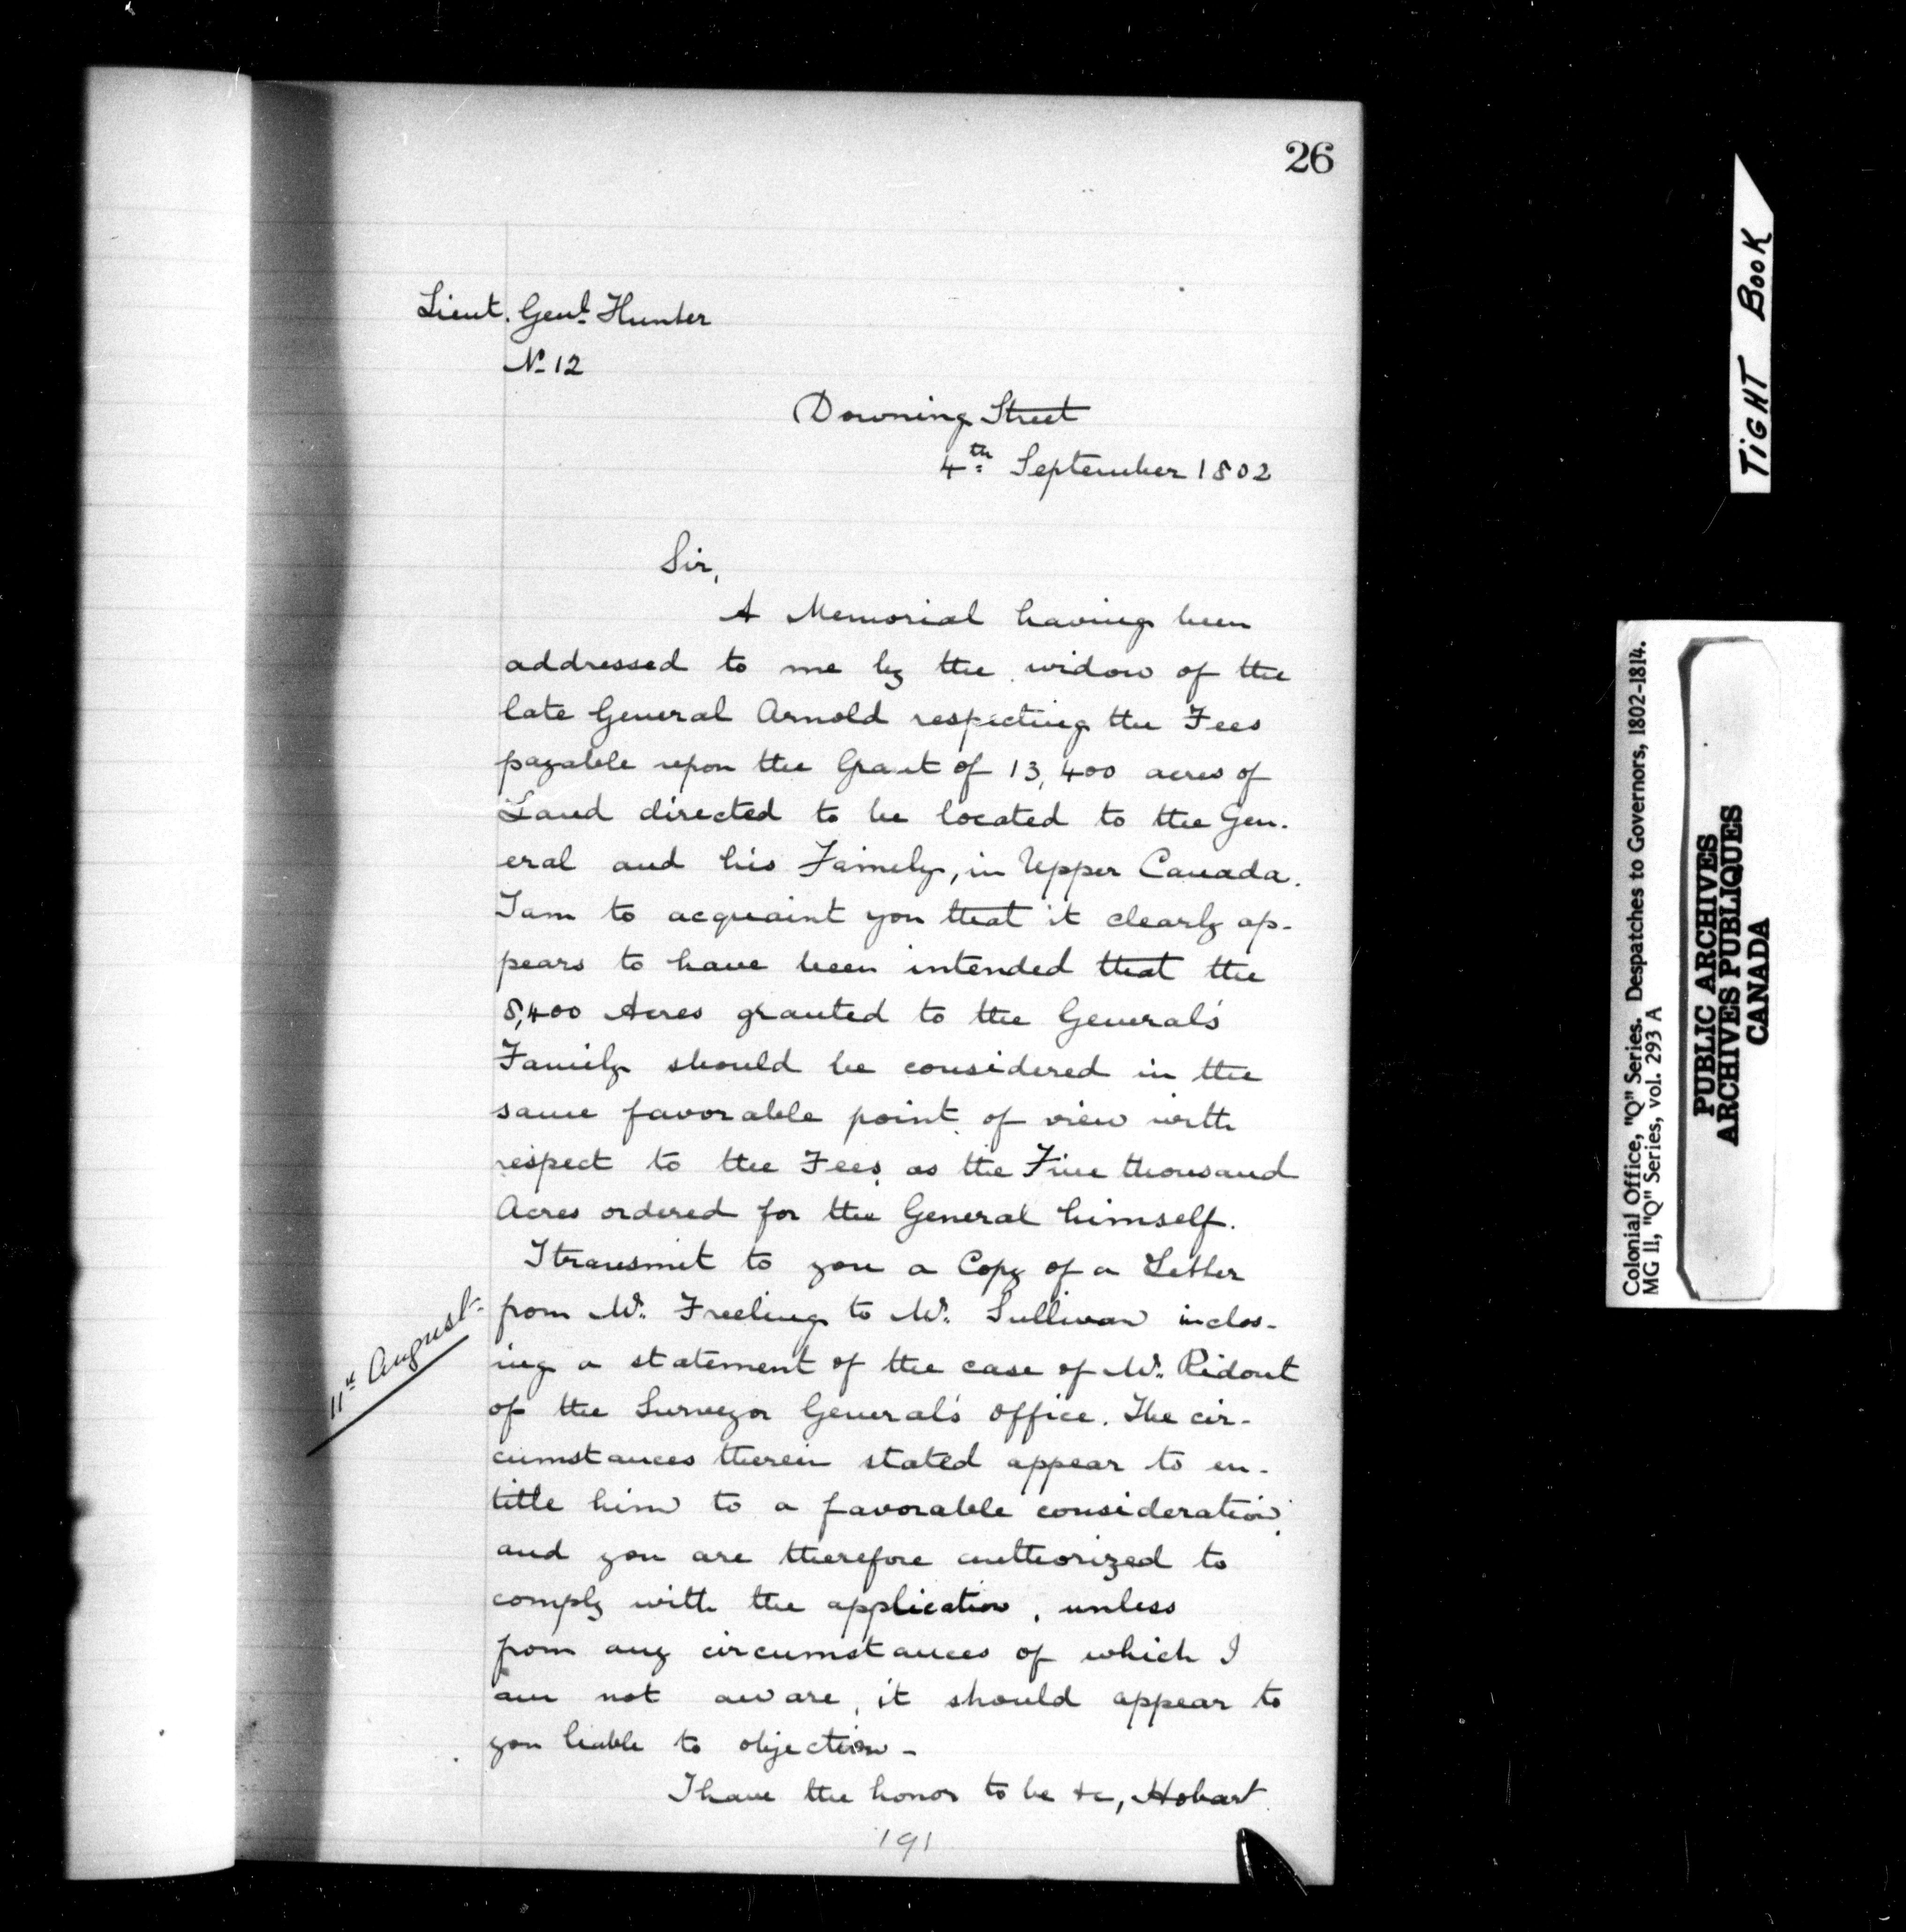 26
Lieut. Genl. Hunter
No. 12
Downing Street
4th September 1802
Sir,
A Memorial having been
addressed to me by the widow of the
late General Arnold respecting the Fees
payable upon the Grant of 13,400 acres of
Land directed to be located to the Gen-
eral and his Family, in Upper Canada.
I am to acquaint you that it clearly ap-
pears to have been intended that the
8,400 Acres granted to the General's
Family should be considered in the
same favorable point of view with
respect to the Fees as the Five thousand
Acres ordered for the General himself.
I transmit to you a Copy of a Letter
11th August.
from Mr. Freeling to Mr. Sullivan inclos-
ing a statement of the case of Mr. Ridout
of the Surveyor General's Office. The cir-
cumstances therein stated appear to en-
title him to a favorable consideration,
and you are therefore authorized to
comply with the application, unless
from any circumstances of which I
am not aware, it should appear to
you liable to objection -
I have the honor to be &c, Hobart
191
TIGHT BOOK
Colonial Office, "Q" Series. Despatches to Governors, 1802-1814.
MG 11, "Q" Series, vol. 293 A
PUBLIC ARCHIVES
ARCHIVES PUBLIQUES
CANADA